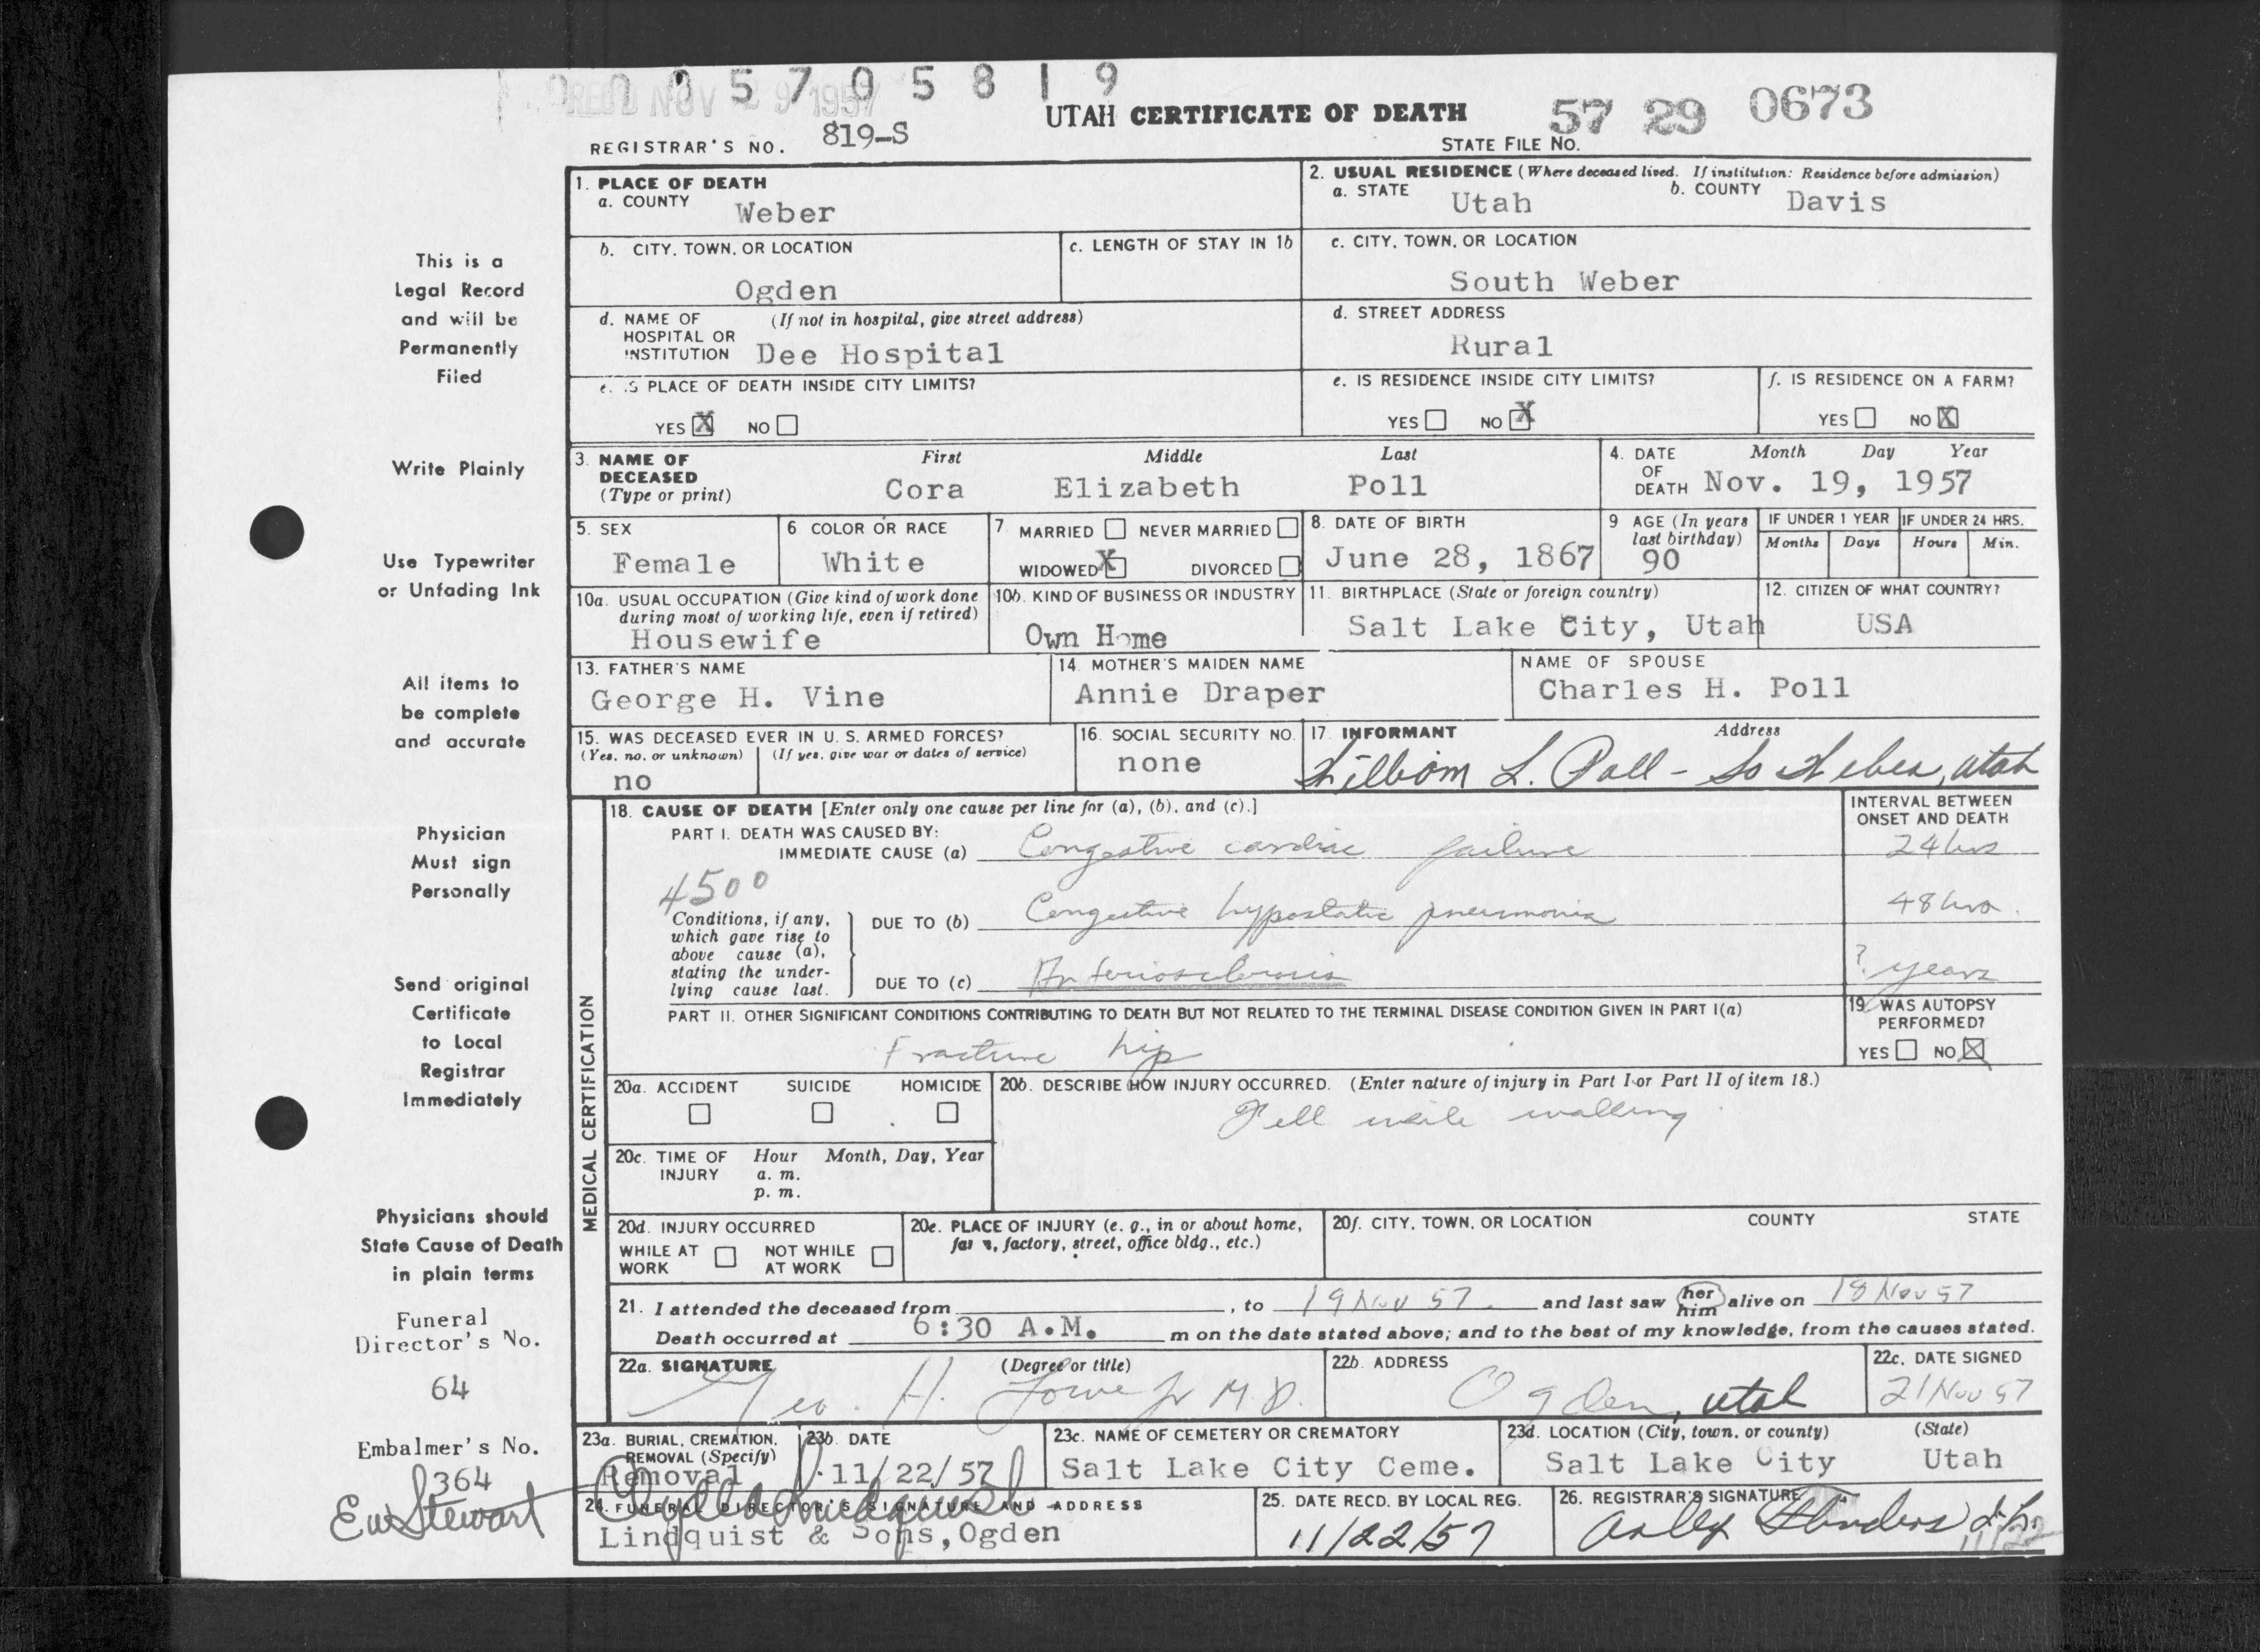 0057058 19
REC'D NOV 29 1957
UTAH CERTIFICATE OF DEATH
57 29 0673
REGISTRAR'S NO. 819-S
STATE FILE NO.
This is a
Legal Record
and will be
Permanently
Filed
Write Plainly
Use Typewriter
or Unfading Ink
All items to
be complete
and accurate
Physician
Must sign
Personally
Send original
Certificate
to Local
Registrar
Immediately
Physicians should
State Cause of Death
in plain terms
Funeral
Director's No.
64
Embalmer's No.
364
EW Stewart
1. PLACE OF DEATH
a. COUNTY
Weber
2. USUAL RESIDENCE (Where deceased lived. If institution: Residence before admission)
a. STATE Utah b. COUNTY Davis
b. CITY, TOWN, OR LOCATION
Ogden
c. LENGTH OF STAY IN 1b
c. CITY, TOWN, OR LOCATION
South Weber
d. NAME OF (If not in hospital, give street address)
HOSPITAL OR
INSTITUTION Dee Hospital
d. STREET ADDRESS
Rural
e. IS PLACE OF DEATH INSIDE CITY LIMITS?
YES X NO
e. IS RESIDENCE INSIDE CITY LIMITS?
YES NO X
f. IS RESIDENCE ON A FARM?
YES NO X
3. NAME OF DECEASED (Type or print)
First Middle Last
Cora Elizabeth Poll
4. DATE OF DEATH Month Day Year
Nov. 19, 1957
5. SEX
Female
6. COLOR OR RACE
White
7. MARRIED NEVER MARRIED
WIDOWED X DIVORCED
8. DATE OF BIRTH
June 28, 1867
9 AGE (In years last birthday)
90
IF UNDER 1 YEAR
Months Days
IF UNDER 24 HRS.
Hours Min.
10a. USUAL OCCUPATION (Give kind of work done
during most of working life, even if retired)
Housewife
10b. KIND OF BUSINESS OR INDUSTRY
Own Home
11. BIRTHPLACE (State or foreign country)
Salt Lake City, Utah
12. CITIZEN OF WHAT COUNTRY?
USA
13. FATHER'S NAME
George H. Vine
14. MOTHER'S MAIDEN NAME
Annie Draper
NAME OF SPOUSE
Charles H. Poll
15. WAS DECEASED EVER IN U. S. ARMED FORCES?
(Yes, no, or unknown) (If yes, give war or dates of service)
no
16. SOCIAL SECURITY NO.
none
17. INFORMANT Address
William L. Poll - So Weber, Utah
MEDICAL CERTIFICATION
18. CAUSE OF DEATH [Enter only one cause per line for (a), (b), and (c).]
INTERVAL BETWEEN
ONSET AND DEATH
PART I. DEATH WAS CAUSED BY:
IMMEDIATE CAUSE (a) Congestive cardiac failure 24 hrs
4500
Conditions, if any,
which gave rise to
above cause (a),
stating the under-
lying cause last.
DUE TO (b) Congestive hypostatic pneumonia 48 hrs.
DUE TO (c) Arteriosclerosis ? years
PART II. OTHER SIGNIFICANT CONDITIONS CONTRIBUTING TO DEATH BUT NOT RELATED TO THE TERMINAL DISEASE CONDITION GIVEN IN PART I(a)
Fracture hip
19. WAS AUTOPSY
PERFORMED?
YES NO X
20a. ACCIDENT SUICIDE HOMICIDE
20b. DESCRIBE HOW INJURY OCCURRED. (Enter nature of injury in Part I or Part II of item 18.)
Fell while walking
20c. TIME OF INJURY Hour Month, Day, Year
a. m.
p. m.
20d. INJURY OCCURRED
WHILE AT WORK NOT WHILE AT WORK
20e. PLACE OF INJURY (e. g., in or about home,
farm, factory, street, office bldg., etc.)
20f. CITY, TOWN, OR LOCATION COUNTY STATE
21. I attended the deceased from , to 19 Nov 57. and last saw her him alive on 18 Nov 57
Death occurred at 6:30 A.M. m on the date stated above; and to the best of my knowledge, from the causes stated.
22a. SIGNATURE (Degree or title)
Geo. H. Lowe Jr M.D.
22b. ADDRESS
Ogden, Utah
22c. DATE SIGNED
21 Nov 57
23a. BURIAL, CREMATION,
REMOVAL (Specify)
Removal
23b. DATE
11/22/57
23c. NAME OF CEMETERY OR CREMATORY
Salt Lake City Ceme.
23d. LOCATION (City, town, or county) (State)
Salt Lake City Utah
24. FUNERAL DIRECTOR'S SIGNATURE AND ADDRESS
Lindquist & Sons, Ogden
25. DATE RECD. BY LOCAL REG.
11/22/57
26. REGISTRAR'S SIGNATURE
11/22